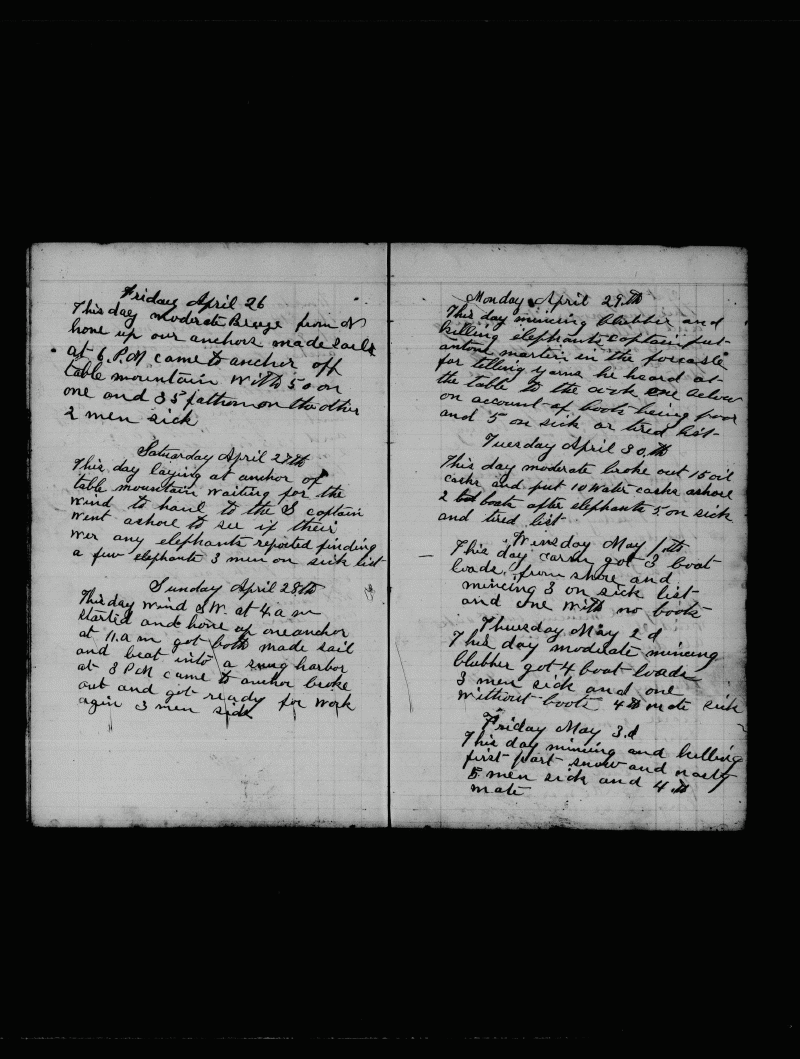 Friday April 26
This day moderate Breeze from N
hove up our anchors made sails
at 6. P.M came to anchor off
table mountain with 50 on
one and 35 fathom on the other
2 men sick
Saturday April 27th
This day laying at anchor of
table mountain waiting for the
wind to haul to the S captain
went ashore to see if their
wer any elephants reported finding
a few elephants 3 men on sick list
Sunday April 28th
This day wind S.W. at 4. a m
started and hove up one anchor
at 11. a m got both made sail
and beat into a snug harbor
at 3 P M came to anchor broke
out and got ready for work
agin 3 men sick
Monday April 29.th
This day mincing blubber and
killing elephants captain put
antone martin in the forcastle
for telling yarns he heard at
the table to the
on account of boots being poor
and 5 on sick or tired list
Tuesday April 30.th
This day moderate broke out 15 oil
casks and put 10 water casks ashore
2 boats after elephants 5 on sick
and tired list
Winsday May 1.th
This day carm got 3 boat
loads from shore and
mincing 3 on sick list
and one with no boots
Thursday May 2 d
This day moderate mincing
blubber got 4 boat loads
3 men sick and one
without boots 4th mate sick
Friday May 3.d
This day mincing and killing
first part snow and nasty
5 men sick and 4.th
mate